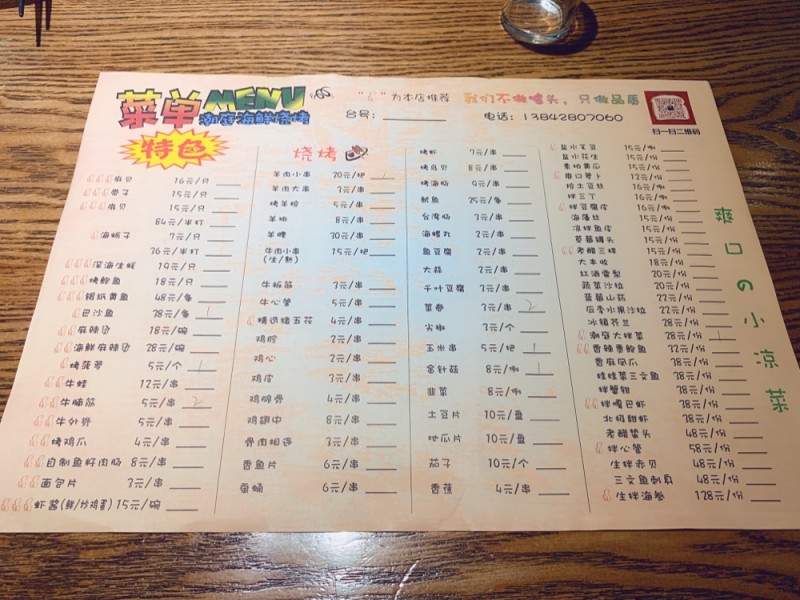 菜单 MENU
潮庭海鲜烧烤
为本店推荐
我们不做噱头，只做品质
台号：
电话：13842807060
扫一扫二维码
特色
扇贝 16元/只
带子 15元/只
扇贝 15元/只
84元/半打
海蛎子 7元/只
36元/半打
深海生蚝 19元/只
烤鲍鱼 18元/只
锡纸黄鱼 48元/条
巴沙鱼 38元/条
麻辣烫 18元/碗
海鲜麻辣烫 28元/碗
烤菠萝 5元/个
牛蛙 12元/串
牛腩筋 5元/串
牛外脊 5元/串
烤鸡爪 4元/串
自制鱼籽肉肠 8元/串
面包片 3元/串
虾酱(鲜/炒鸡蛋) 15元/碗
烧烤
羊肉小串 20元/把
羊肉大串 3元/串
烤羊排 5元/串
羊排 8元/串
羊腰 30元/串
牛肉小串 15元/把
(生/熟)
牛板筋 3元/串
牛心管 5元/串
精选猪五花 4元/串
鸡胗 2元/串
鸡心 2元/串
鸡皮 3元/串
鸡脆骨 4元/串
鸡翅中 8元/串
骨肉相连 3元/串
香鱼片 6元/串
蚕蛹 6元/串
烤虾 7元/串
烤鸟贝 8元/串
烤海肠 9元/串
鱿鱼 25元/条
台湾肠 3元/串
海螺丸 2元/串
鱼豆腐 2元/串
大蒜 2元/串
千叶豆腐 3元/串
菜卷 3元/串
尖椒 3元/个
玉米串 5元/把
金针菇 8元/例
韭菜 8元/例
土豆片 10元/盘
地瓜片 10元/盘
茄子 10元/个
香蕉 4元/串
爽口の小凉菜
盐水毛豆 15元/例
盐水花生 15元/例
15元/份
爽口萝卜 12元/份
炝土豆丝 16元/例
拌三丁 16元/例
拌豆腐皮 16元/份
海藻丝 15元/份
凉拌鱼皮 15元/份
草莓罐头 15元/份
老醋三样 15元/份
大丰收 18元/份
红酒雪梨 20元/份
蔬菜沙拉 20元/份
蓝莓山药 22元/份
应季水果沙拉 22元/份
冰镇芥兰 28元/份
潮庭大拌菜 28元/份
香辣墨鲍鱼 32元/份
香麻凤爪 38元/份
娃娃菜三文鱼 38元/份
拌蟹钳 38元/份
拌嘎巴虾 38元/份
北极甜虾 38元/份
老醋蜇头 48元/份
拌心管 58元/份
生拌赤贝 48元/份
三文鱼刺身 48元/例
生拌海参 128元/份